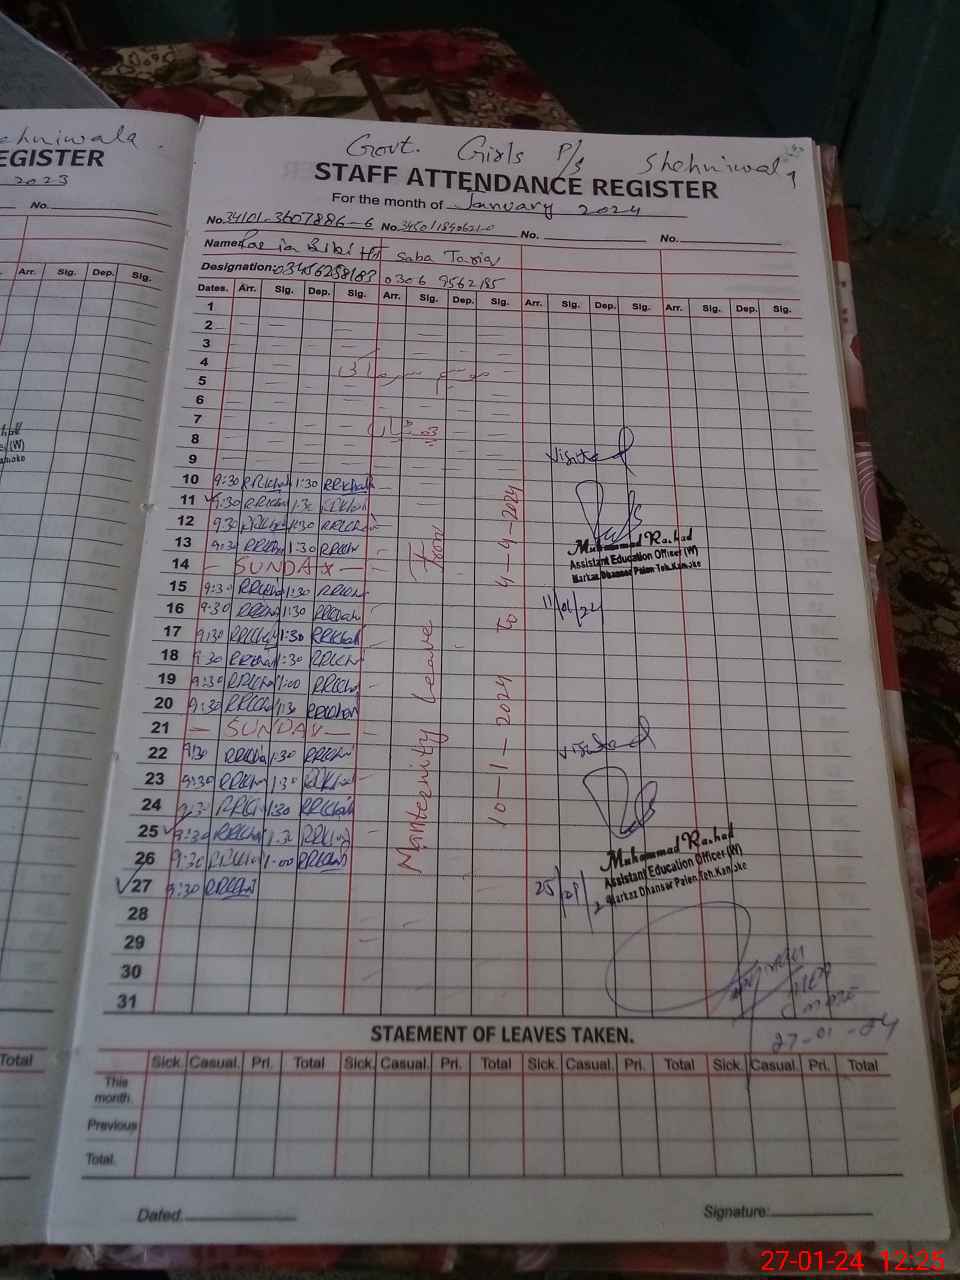 ehniwala.
EGISTER
2023
No.
Arr. Sig. Dep. Sig.
Total
Govt. Girls P/S Shehniwala
STAFF ATTENDANCE REGISTER
For the month of January 2024
No. 34101-3607886-6 No. No. No.
Name: Bibi Ht Saba Tariq
Designation: 03456258163 0306 9562185
Dates. Arr. Sig. Dep. Sig. Arr. Sig. Dep. Sig. Arr. Sig. Dep. Sig. Arr. Sig. Dep. Sig.
1
2
3
4
5
6
7
8
9
Visited
10 9:30 RRKhan 1:30 RRKhan
11 9:30 RRKhan 1:30 RRKhan
12 9:30 RRKhan 1:30 RRKhan
13 9:30 RRKhan 1:30 RRKhan
Muhammad Rashad
Assistant Education Officer (W)
Markaz Dhansar Paien Teh. Kamoke
11/01/24
14 - SUNDAY -
15 9:30 RRKhan 1:30 RRKhan
16 9:30 RRKhan 1:30 RRKhan
17 9:30 RRKhan 1:30 RRKhan
18 9:30 RRKhan 1:30 RRKhan
19 9:30 RRKhan 1:00 RRKhan
20 9:30 RRKhan 1:30 RRKhan
21 - SUNDAY -
22 9:30 RRKhan 1:30 RRKhan
23 9:30 RRKhan 1:30 RRKhan
24 9:30 RRKhan 1:30 RRKhan
25 9:30 RRKhan 1:30 RRKhan
26 9:30 RRKhan 1:00 RRKhan
27 9:30 RRKhan
28
29
30
31
Manternity Leave from
10-1-2024 to 4-4-2024
Visited
Muhammad Rashad
Assistant Education Officer (W)
Markaz Dhansar Paien Teh. Kamoke
27-01-24
STAEMENT OF LEAVES TAKEN.
Sick. Casual. Pri. Total Sick. Casual. Pri. Total Sick. Casual. Pri. Total Sick. Casual. Pri. Total
This month.
Previous
Total.
Dated: Signature:
27-01-24 12:25